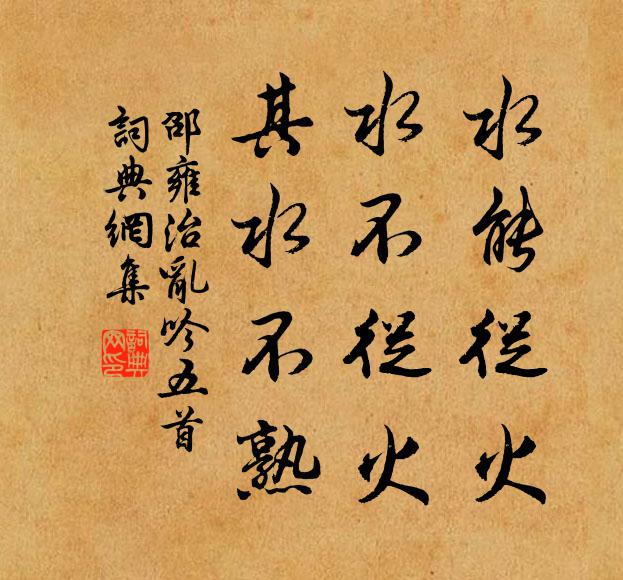 水能從火
水不從火
其水不熟
邵雍治亂吟五首
詞典網集
詞典網印